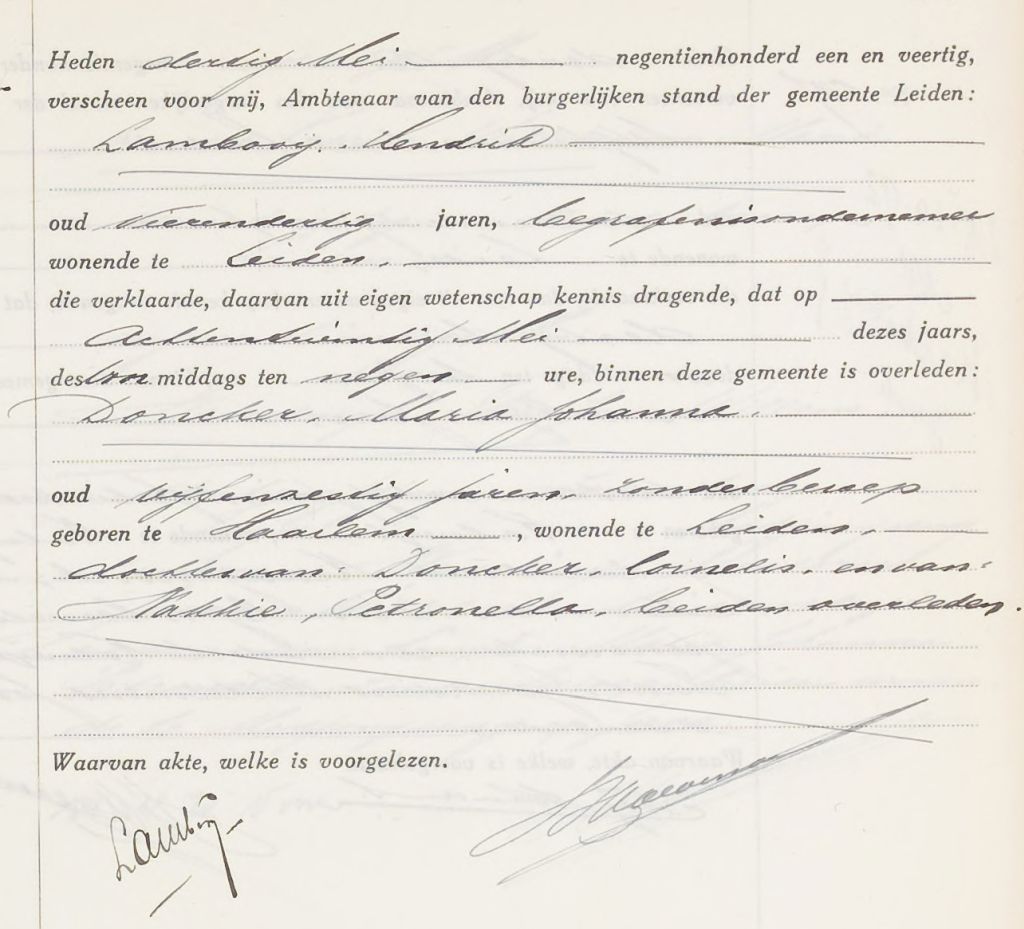 Heden dertig Mei negentienhonderd een en veertig,
verscheen voor mij, Ambtenaar van den burgerlijken stand der gemeente Leiden:
Lambooij, Hendrik
oud vierendertig jaren, begrafenisondernemer
wonende te Leiden,
die verklaarde, daarvan uit eigen wetenschap kennis dragende, dat op
Achtentwintig Mei dezes jaars,
des voormiddags ten negen ure, binnen deze gemeente is overleden:
Doncker, Maria Johanna,
oud vijfenzestig jaren, zonder beroep
geboren te Haarlem, wonende te Leiden,
dochter van: Doncker, Cornelis, en van:
Petronella, beiden overleden.
Waarvan akte, welke is voorgelezen.
Lambooij